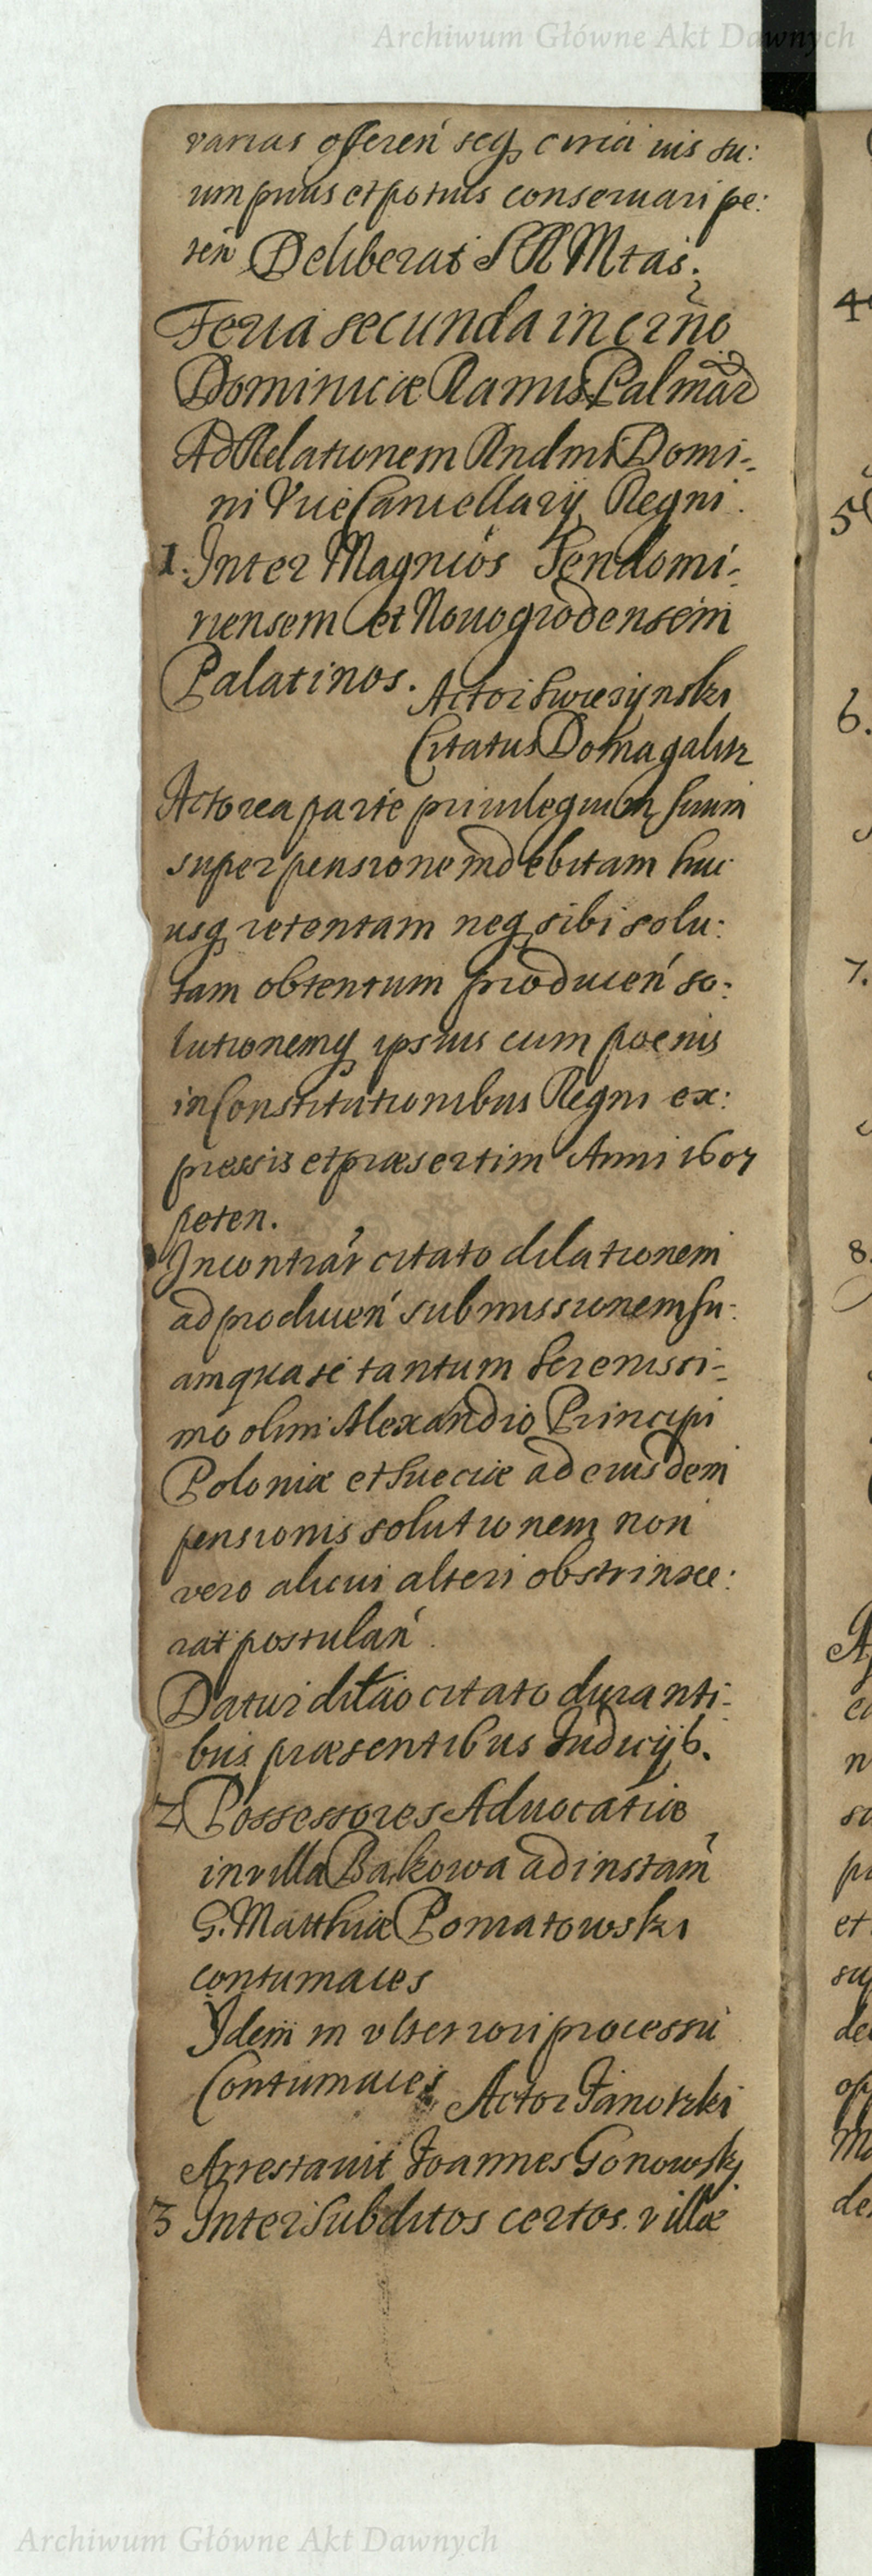 Archiwum Główne Akt Dawnych
varias offeren seq circa ius su:
um prius et potius conseruari pe:
ten Deliberat S R Mtas.
Feria secunda in crño
Dominicæ Ramis Palmar
Ad Relationem Rndmi Domi-
ni Vice Cancellarij Regni.
1. Inter Magnicos Sendomi-
riensem et Nouogrodensem
Palatinos. Actor Swiezynski
Citatus Domagalicz
Actorea parte priuilegium suum
super pensione indebitam huc
usq retentam neq sibi solu:
tam obtentum producen so:
lutionemq ipsius cum poenis
in Constitutionibus Regni ex:
pressis et præsertim Anni 1607
peten.
In contrar citato dilationem
ad producen submissionem su:
am qua se tantum Serenissi-
mo olim Alexandro Principi
Poloniæ et Sueciæ ad eiusdem
pensionis solutionem non
vero alicui alteri obstrinxe:
rat postulan.
Datur dilaio citato duranti-
bus præsentibus Iudicijs.
2 Possessores Aduocatiæ
in villa Bakowa ad instam
G. Matthiæ Poniatowski
contumaces
Idem in vlteriori processu
Contumaces Actor Janotzki
Arrestauit Joannes Gonowsky
3 Inter Subditos certos villæ
4
5
6.
7.
8.
Archiwum Główne Akt Dawnych